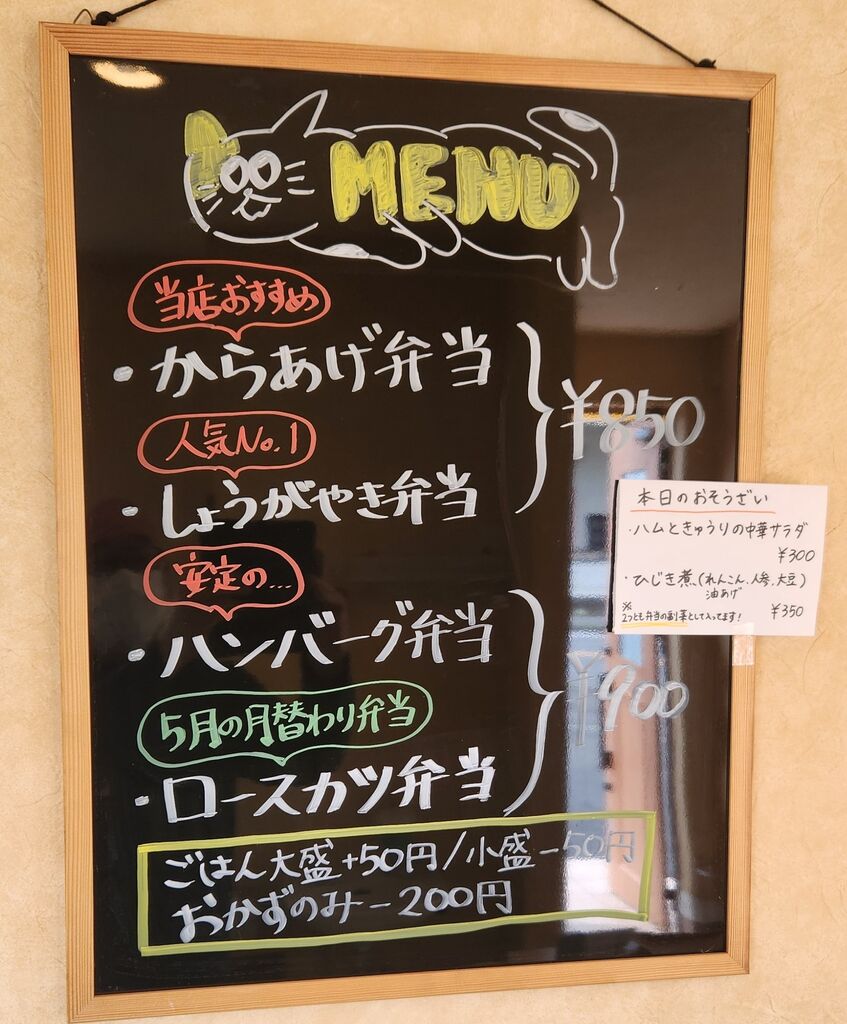 MENU
当店おすすめ
・からあげ弁当
¥850
人気No.1
・しょうがやき弁当
安定の...
・ハンバーグ弁当
¥900
5月の月替わり弁当
・ロースカツ弁当
ごはん大盛+50円/小盛-50円
おかずのみ-200円
本日のおそうざい
・ハムときゅうりの中華サラダ
¥300
・ひじき煮(れんこん、人参、大豆)
油あげ
¥350
※
2つとも弁当の副菜として入ってます!